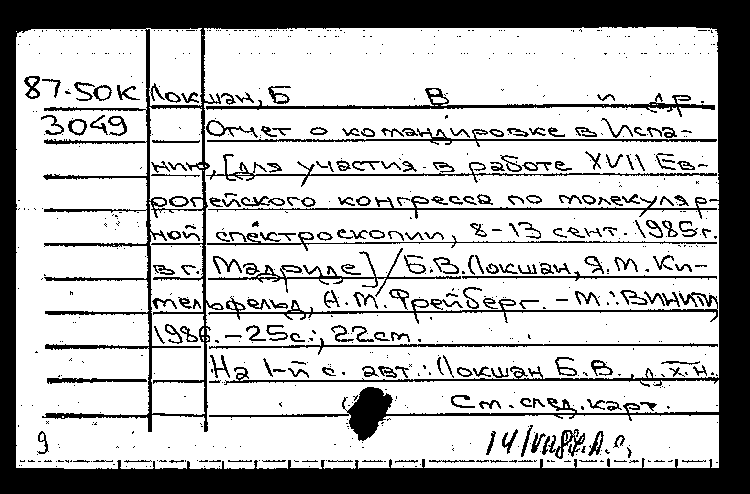 87-50К Локшан, Б В и др.
3049 Отчет о командировке в Испа-
нию, [для участия в работе XVII Ев-
ропейского конгресса по молекуляр-
ной спектроскопии, 8-13 сент. 1985г.
в г. Мадриде] / Б.В.Локшан, Я.М.Ки-
мельфельд, А.М.Фрейберг. - М.: ВИНИТИ
1986. - 25с.; 22см.
На 1-й с. авт.: Локшан Б.В., д.х.н.
См. след. карт.
9 14/